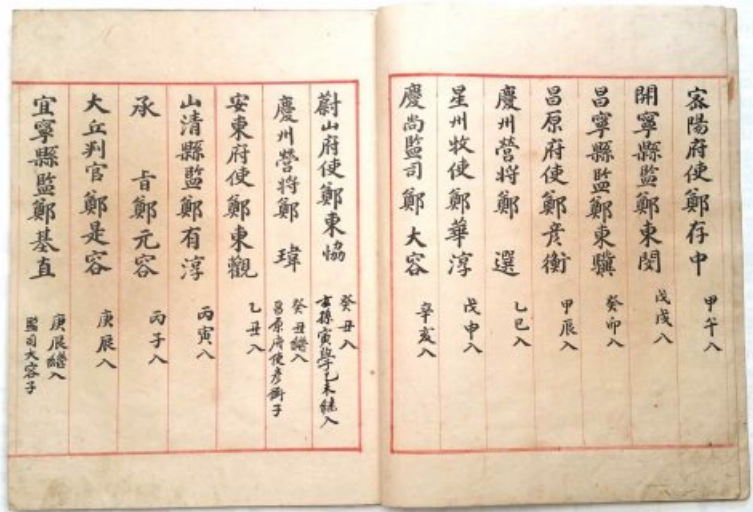 密陽府使鄭存中 甲午入
開寧縣監鄭東閔 戊戌入
昌寧縣監鄭東驥 癸卯入
昌原府使鄭彦衡 甲辰入
慶州營將鄭 選 乙巳入
星州牧使鄭華淳 戊申入
慶尚監司鄭大容 辛亥入
蔚山府使鄭東協 癸丑入
玄孫寅學己未繼入
慶州營將鄭 瑋 癸丑繼入
昌原府使彦衡子
安東府使鄭東觀 乙丑入
山清縣監鄭有淳 丙寅入
承 旨鄭元容 丙子入
大丘判官鄭是容 庚辰入
宜寧縣監鄭基直 庚辰繼入
監司大容子